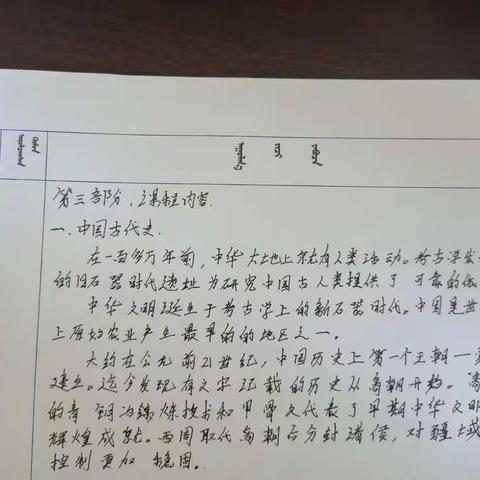 第三部分、课程内容.
一、中国古代史.
在一百多万年前,中华大地上就有人类活动。考古学发
的旧石器时代遗址为研究中国古人类提供了可靠的依
中华文明诞生于考古学上的新石器时代。中国是世
上原始农业产生最早的的地区之一。
大约在公元前21世纪,中国历史上第一个王朝一夏
建立。迄今发现有文字记载的历史从商朝开始。商
的青铜冶铸炼技术和甲骨文代表了早期中华文明
辉煌成就。西周取代商朝后分封诸侯,对疆域
控制更加稳固。